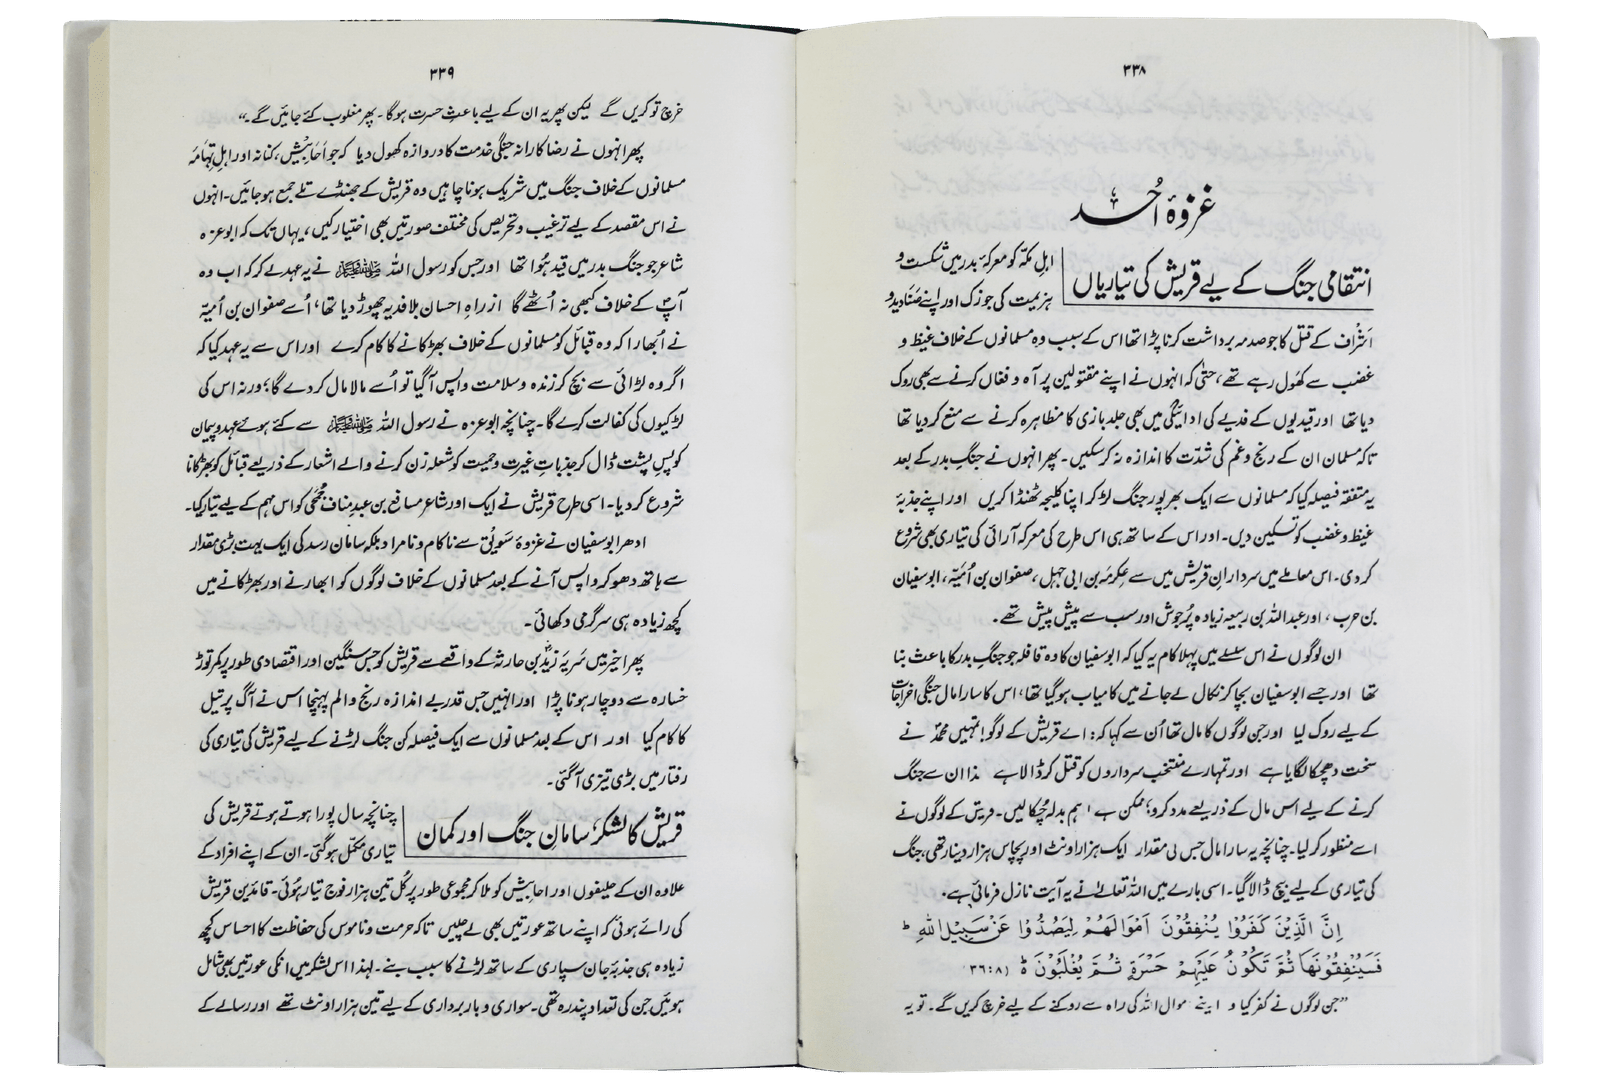 ۳۳۸
غزوۂ اُحد
انتقامی جنگ کے لیے قریش کی تیاریاں
اہلِ مکہّ کو معرکۂ بدر میں شکست و
ہزیمت کی جو زک اور اپنے صَنَادید و
اَشراف کے قتل کا جو صدمہ برداشت کرنا پڑا تھا اس کے سبب وہ مسلمانوں کے خلاف غیظ و
غضب سے کھول رہے تھے، حتیٰ کہ انہوں نے اپنے مقتولین پر آہ و فغاں کرنے سے بھی روک
دیا تھا اور قیدیوں کے فدیے کی ادائیگی میں بھی جلد بازی کا مظاہرہ کرنے سے منع کر دیا تھا
تاکہ مسلمان ان کے رنج و غم کی شدّت کا اندازہ نہ کر سکیں۔ پھر انہوں نے جنگِ بدر کے بعد
یہ متفقہ فیصلہ کیا کہ مسلمانوں سے ایک بھرپور جنگ لڑ کر اپنا کلیجہ ٹھنڈا کریں اور اپنے جذبۂ
غیظ و غضب کو تسکین دیں۔ اور اس کے ساتھ ہی اس طرح کی معرکہ آرائی کی تیاری بھی شروع
کر دی۔ اس معاملے میں سردارانِ قریش میں سے عِکرمہ بن ابی جہل، صفوان بن اُمَیّہ، ابوسفیان
بن حرب، اور عبداللہ بن ربیعہ زیادہ پُرجوش اور سب سے پیش پیش تھے۔
ان لوگوں نے اس سلسلے میں پہلا کام یہ کیا کہ ابوسفیان کا وہ قافلہ جو جنگِ بدر کا باعث بنا
تھا اور جسے ابوسفیان بچا کر نکال لے جانے میں کامیاب ہو گیا تھا، اس کا سارا مال جنگی اخراجات
کے لیے روک لیا اور جن لوگوں کا مال تھا اُن سے کہا کہ: اے قریش کے لوگو! تمہیں محمدؐ نے
سخت دھچکا لگایا ہے اور تمہارے منتخب سرداروں کو قتل کر ڈالا ہے ان سے جنگ
کرنے کے لیے اس مال کے ذریعے مدد کرو؛ ممکن ہے ہم بدلہ چُکا لیں۔ قریش کے لوگوں نے
اسے منظور کر لیا۔ چنانچہ یہ سارا مال جس کی مقدار ایک ہزار اونٹ اور پچاس ہزار دینار تھی، جنگ
کی تیاری کے لیے بیچ ڈالا گیا۔ اسی بارے میں اللہ تعالےٰ نے یہ آیت نازل فرمائی ہے۔
اِنَّ الَّذِيْنَ كَفَرُوْا يُنْفِقُوْنَ اَمْوَالَهُمْ لِيَصُدُّوْا عَنْ سَبِيْلِ اللّٰهِ ؕ
فَسَيُنْفِقُوْنَهَا ثُمَّ تَكُوْنُ عَلَيْهِمْ حَسْرَةً ثُمَّ يُغْلَبُوْنَ ؕ (۳۶:۸)
”جن لوگوں نے کفر کیا و اپنے موال اللہ کی راہ سے روکنے کے لیے خرچ کریں گے۔ تو یہ
۳۳۹
خرچ تو کریں گے لیکن پھر یہ ان کے لیے باعثِ حسرت ہوگا۔ پھر مغلوب کئے جائیں گے۔“
پھر انہوں نے رضاکارانہ جنگی خدمت کا دروازہ کھول دیا کہ جو اَحابِیش، کنانہ اور اہلِ تِہامَہ
مسلمانوں کے خلاف جنگ میں شریک ہونا چاہیں وہ قریش کے جھنڈے تلے جمع ہو جائیں۔ انہوں
نے اس مقصد کے لیے ترغیب و تحریص کی مختلف صورتیں بھی اختیار کیں، یہاں تک کہ ابو عزہ
شاعر جو جنگ بدر میں قید ہُوا تھا اور جس کو رسول اللہ ﷺ نے یہ عہد لے کر کہ اب وہ
آپؐ کے خلاف کبھی نہ اُٹھے گا از راہِ احسان بلا فدیہ چھوڑ دیا تھا، اُسے صفوان بن اُمَیّہ
نے اُبھارا کہ وہ قبائل کو مسلمانوں کے خلاف بھڑکانے کا کام کرے اور اس سے یہ عہد کیا کہ
اگر وہ لڑائی سے بچ کر زندہ و سلامت واپس آ گیا تو اُسے مالا مال کر دے گا؛ ورنہ اس کی
لڑکیوں کی کفالت کرے گا۔ چنانچہ ابو عزہ نے رسول اللہ ﷺ سے کئے ہوئے عہد و پیمان
کو پسِ پشت ڈال کر جذباتِ غیرت و حمیت کو شعلہ زن کرنے والے اشعار کے ذریعے قبائل کو بھڑکانا
شروع کر دیا۔ اسی طرح قریش نے ایک اور شاعر مسافع بن عبد مناف جُمَحی کو اس مہم کے لیے تیار کیا۔
ادھر ابوسفیان نے غزوۂ سَوِیق سے ناکام و نامراد بلکہ سامانِ رسد کی ایک بہت بڑی مقدار
سے ہاتھ دھو کر واپس آنے کے بعد مسلمانوں کے خلاف لوگوں کو ابھارنے اور بھڑکانے میں
کچھ زیادہ ہی سرگرمی دکھائی۔
پھر اخیر میں سَریۂ زیدؓ بن حارثہ کے واقعے سے قریش کو جس سنگین اور اقتصادی طور پر کمر توڑ
خسارہ سے دوچار ہونا پڑا اور انہیں جس قدر بے اندازہ رنج و الم پہنچا اس نے آگ پر تیل
کا کام کیا اور اس کے بعد مسلمانوں سے ایک فیصلہ کن جنگ لڑنے کے لیے قریش کی تیاری کی
رفتار میں بڑی تیزی آگئی۔
قریش کا لشکر، سامانِ جنگ اور کمان
چنانچہ سال پورا ہوتے ہوتے قریش کی
تیاری مکمّل ہو گئی۔ ان کے اپنے افراد کے
علاوہ ان کے حلیفوں اور احابیش کو ملا کر مجموعی طور پر کُل تین ہزار فوج تیار ہُوئی۔ قائدینِ قریش
کی رائے ہوئی کہ اپنے ساتھ عورتیں بھی لے چلیں تاکہ حرمت و ناموس کی حفاظت کا احساس کچھ
زیادہ ہی جذبۂ جان سپاری کے ساتھ لڑنے کا سبب بنے۔ لہٰذا اس لشکر میں انکی عورتیں بھی شامل
ہوئیں جن کی تعداد پندرہ تھی۔ سواری و بار برداری کے لیے تین ہزار اونٹ تھے اور رسالے کے